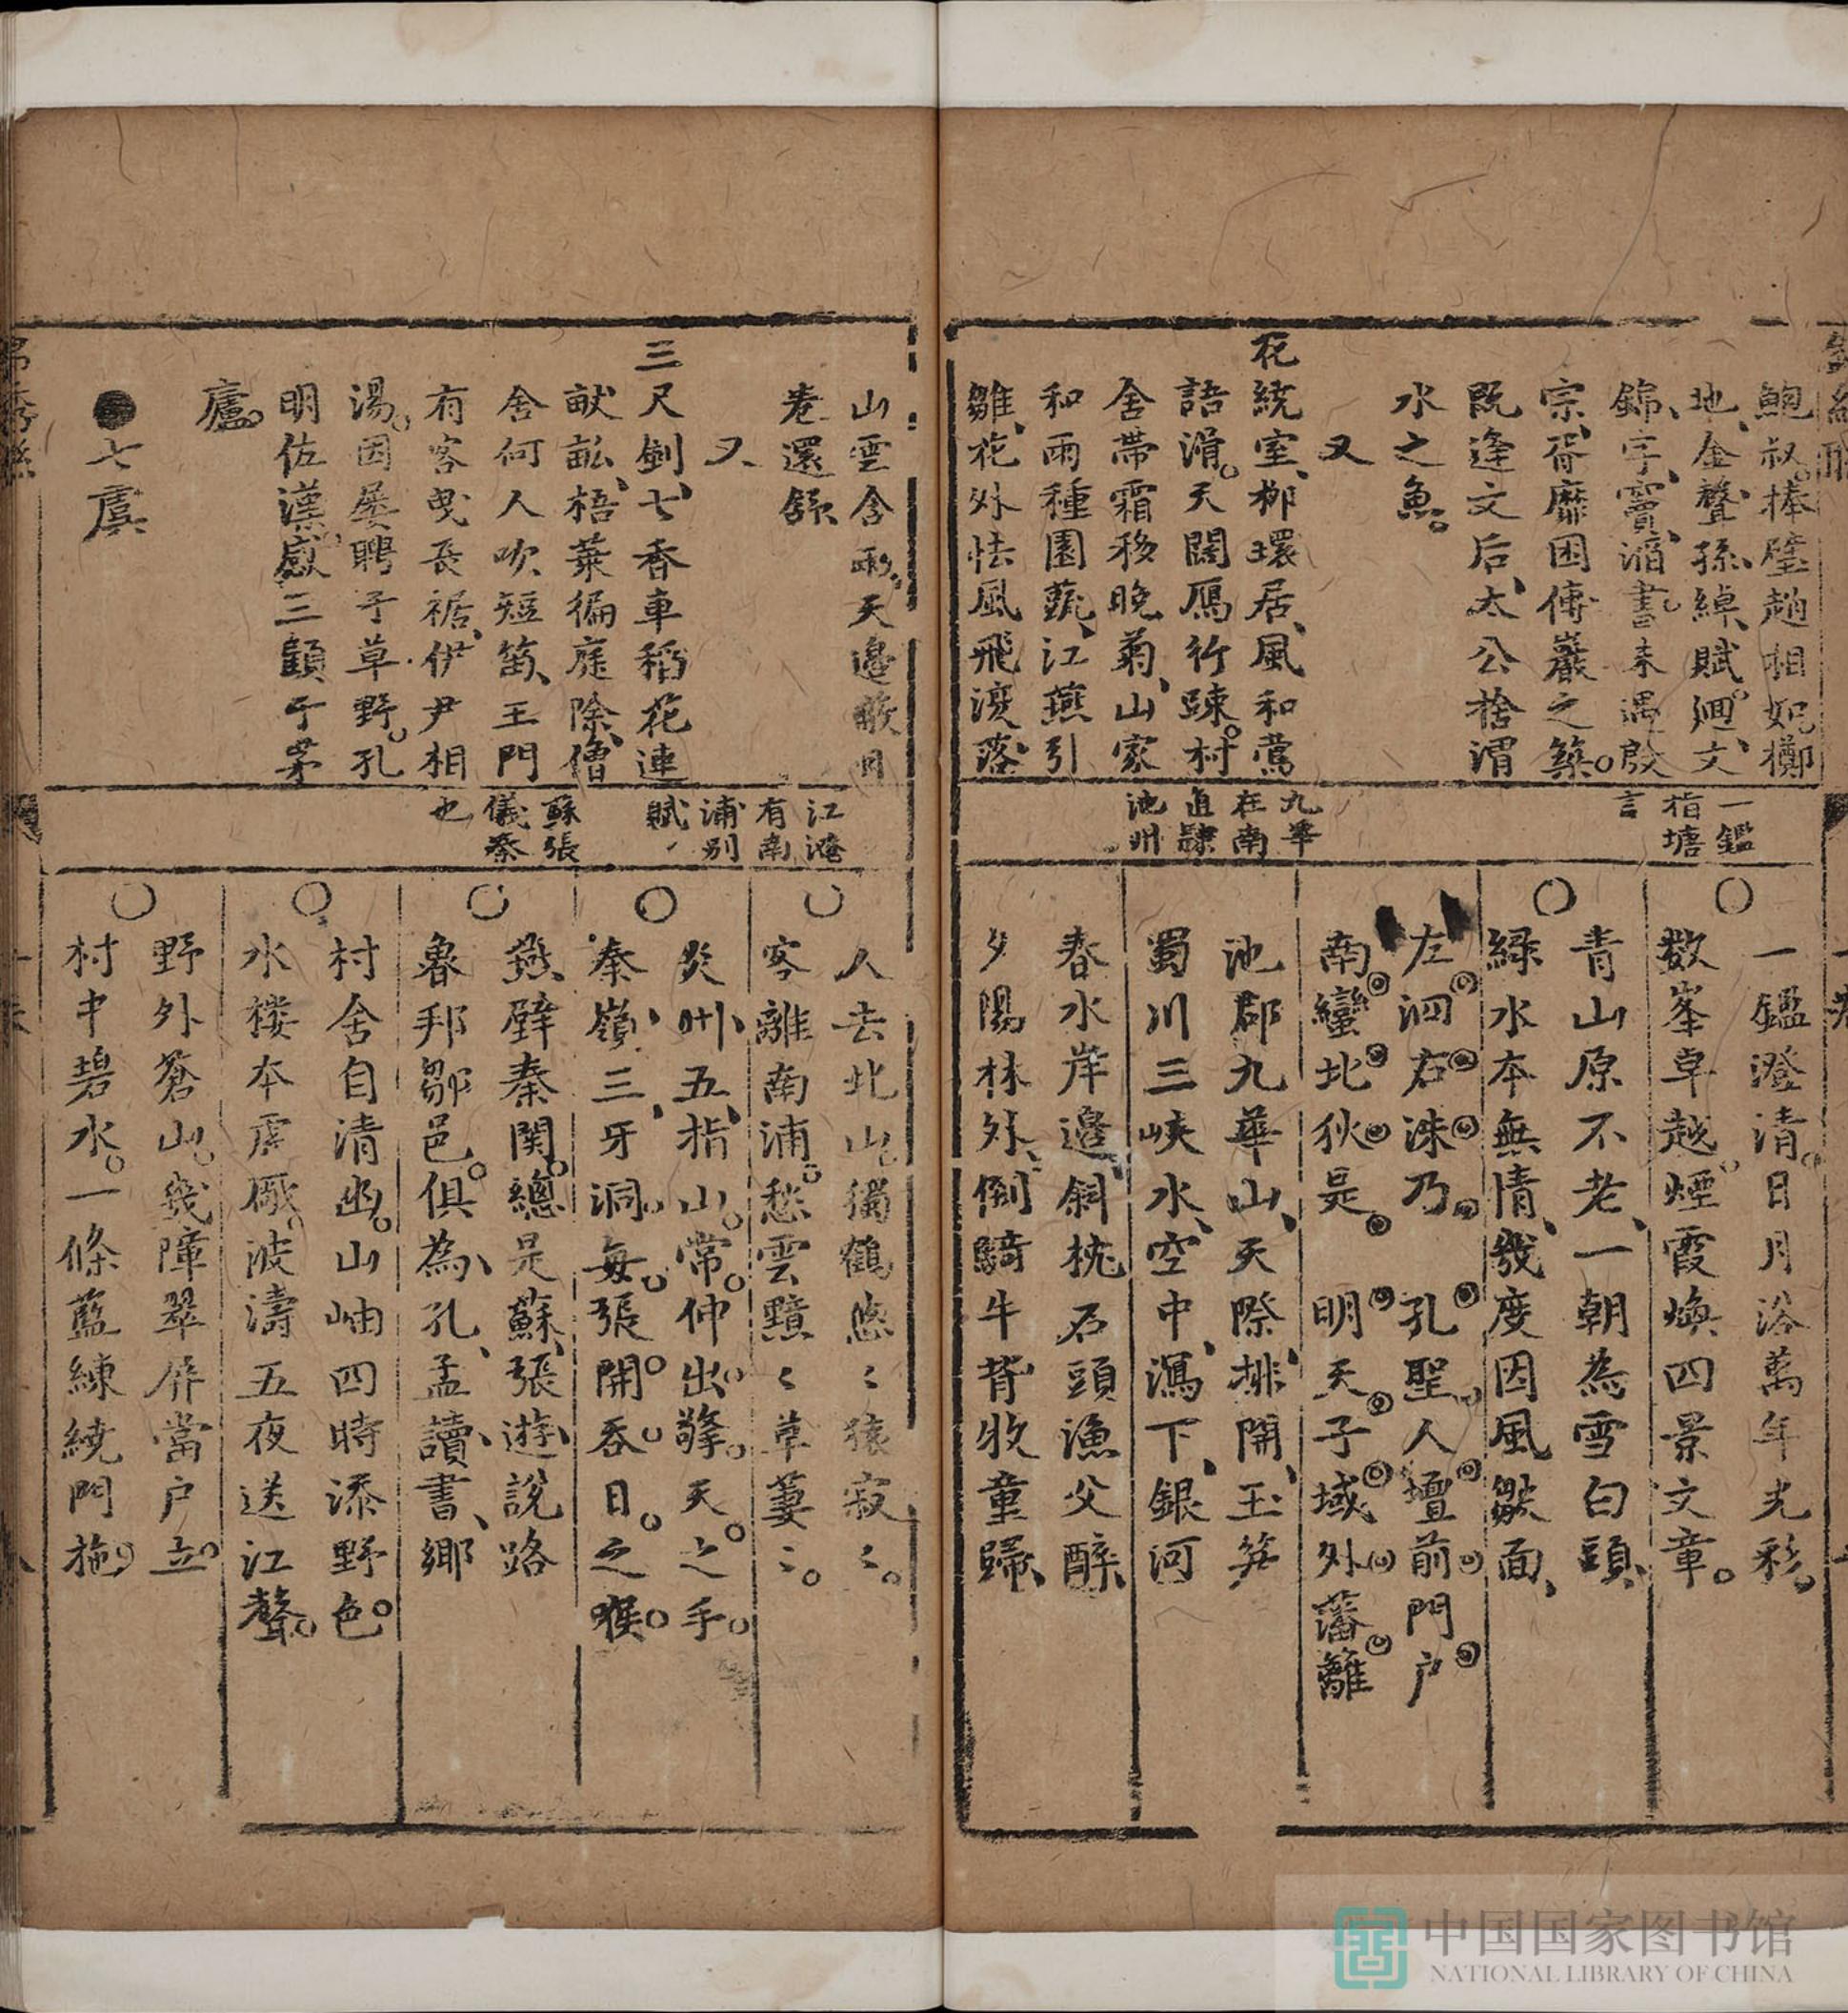 鮑叔捧璧趙相如擲
地金聲孫綽賦廻文
錦字竇滔書未遇殷
宗胥靡困傅巖之築
既逢文后太公捨渭
水之魚
又
花繞室柳環居風和鶯
語滑天闊鴈行踈村
舍帶霜移晚菊山家
和雨種園蔬江燕引
雛花外怯風飛濩落
一鑑
指塘
言
九華
在南
直隸
池州
一鑑澄清日月浴萬年光彩
数峯卓越煙霞煥四景文章
青山原不老一朝為雪白頭
緑水本無情幾度因風皺面
左泗右洙乃 孔聖人壇前門户
南蠻北狄是 明天子域外藩籬
池郡九華山天際排開玉笋
蜀川三峽水空中瀉下銀河
春水岸邊斜枕石頭漁父醉
夕陽林外倒騎牛背牧童歸
山雲含雨天邉蔽日
卷還舒
又
三尺劍七香車稻花連
畎畝梧葉徧庭除僧
舍何人吹短笛王門
有客曳長裾伊尹相
湯因屡聘于草野孔
明佐漢感三顧于茅
廬
七虞
江淹
有南
浦别
賦
蘇張
儀秦
也
人去北山獨鶴怨〻猿寂〻
客離南浦愁雲黯〻草萋〻
炎州五指山常伸出擎天之手
秦嶺三牙洞毎張開吞日之喉
燕壁秦関總是蘇張遊說路
魯邦鄒邑俱為孔孟讀書鄉
村舍自清幽山岫四時添野色
水楼本虚厰波濤五夜送江聲
野外蒼山幾障翠屏當户立
村中碧水一條藍練繞門拖